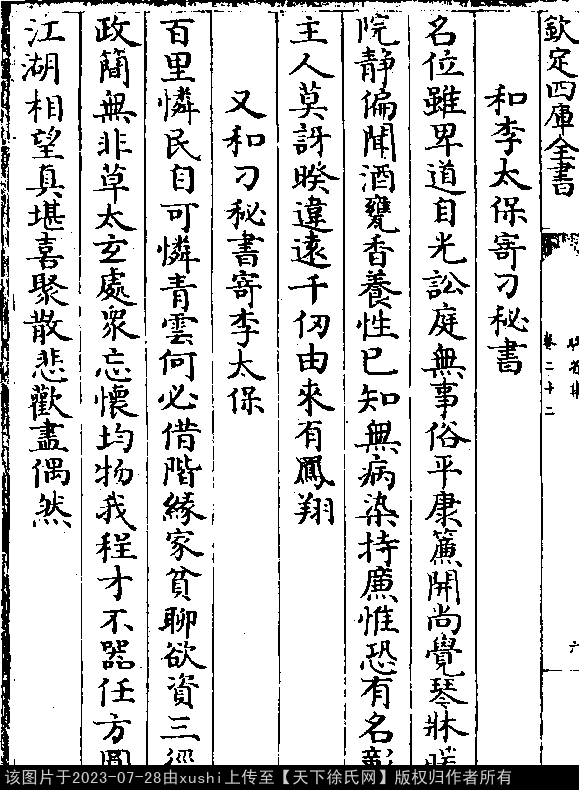 欽定四庫全書
卷二十二
六
和李太保寄刁秘書
名位雖卑道自光訟庭無事俗平康簾開尚覺琴牀暖
院静偏聞酒甕香養性已知無病染持廉惟恐有名彰
主人莫訝暌違遠千仞由來有鳳翔
又和刁秘書寄李太保
百里憐民自可憐青雲何必借階緣家貧聊欲資三徑
政簡無非草太玄處衆忘懷均物我程才不器任方圓
江湖相望真堪喜聚散悲歡盡偶然
该图片于2023-07-28由xushi上传至【天下徐氏网】版权归作者所有